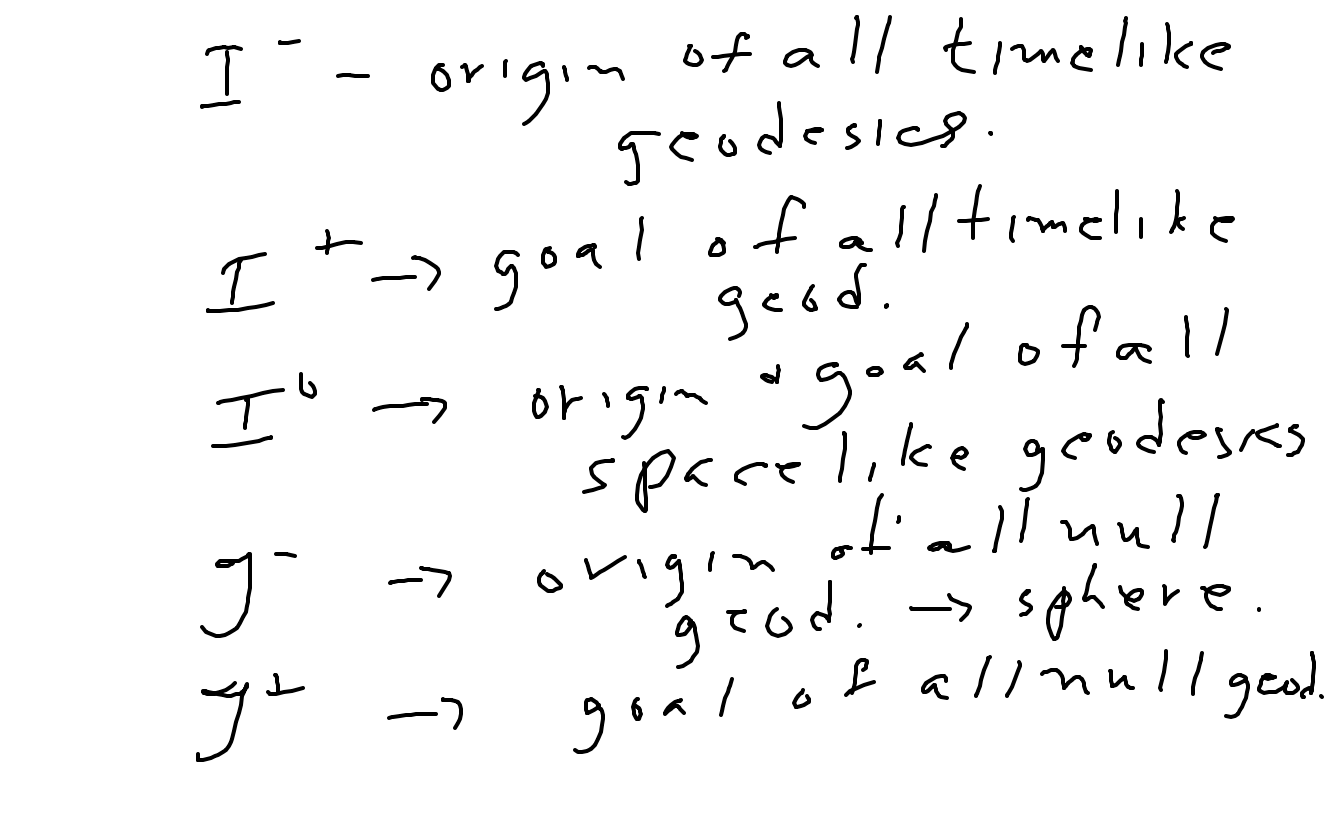 I⁻ - origin of all timelike
geodesics.
I⁺ → goal of all timelike
geod.
I⁰ → origin & goal of all
spacelike geodesics
J⁻ → origin of all null
geod. → sphere.
J⁺ → goal of all null geod.